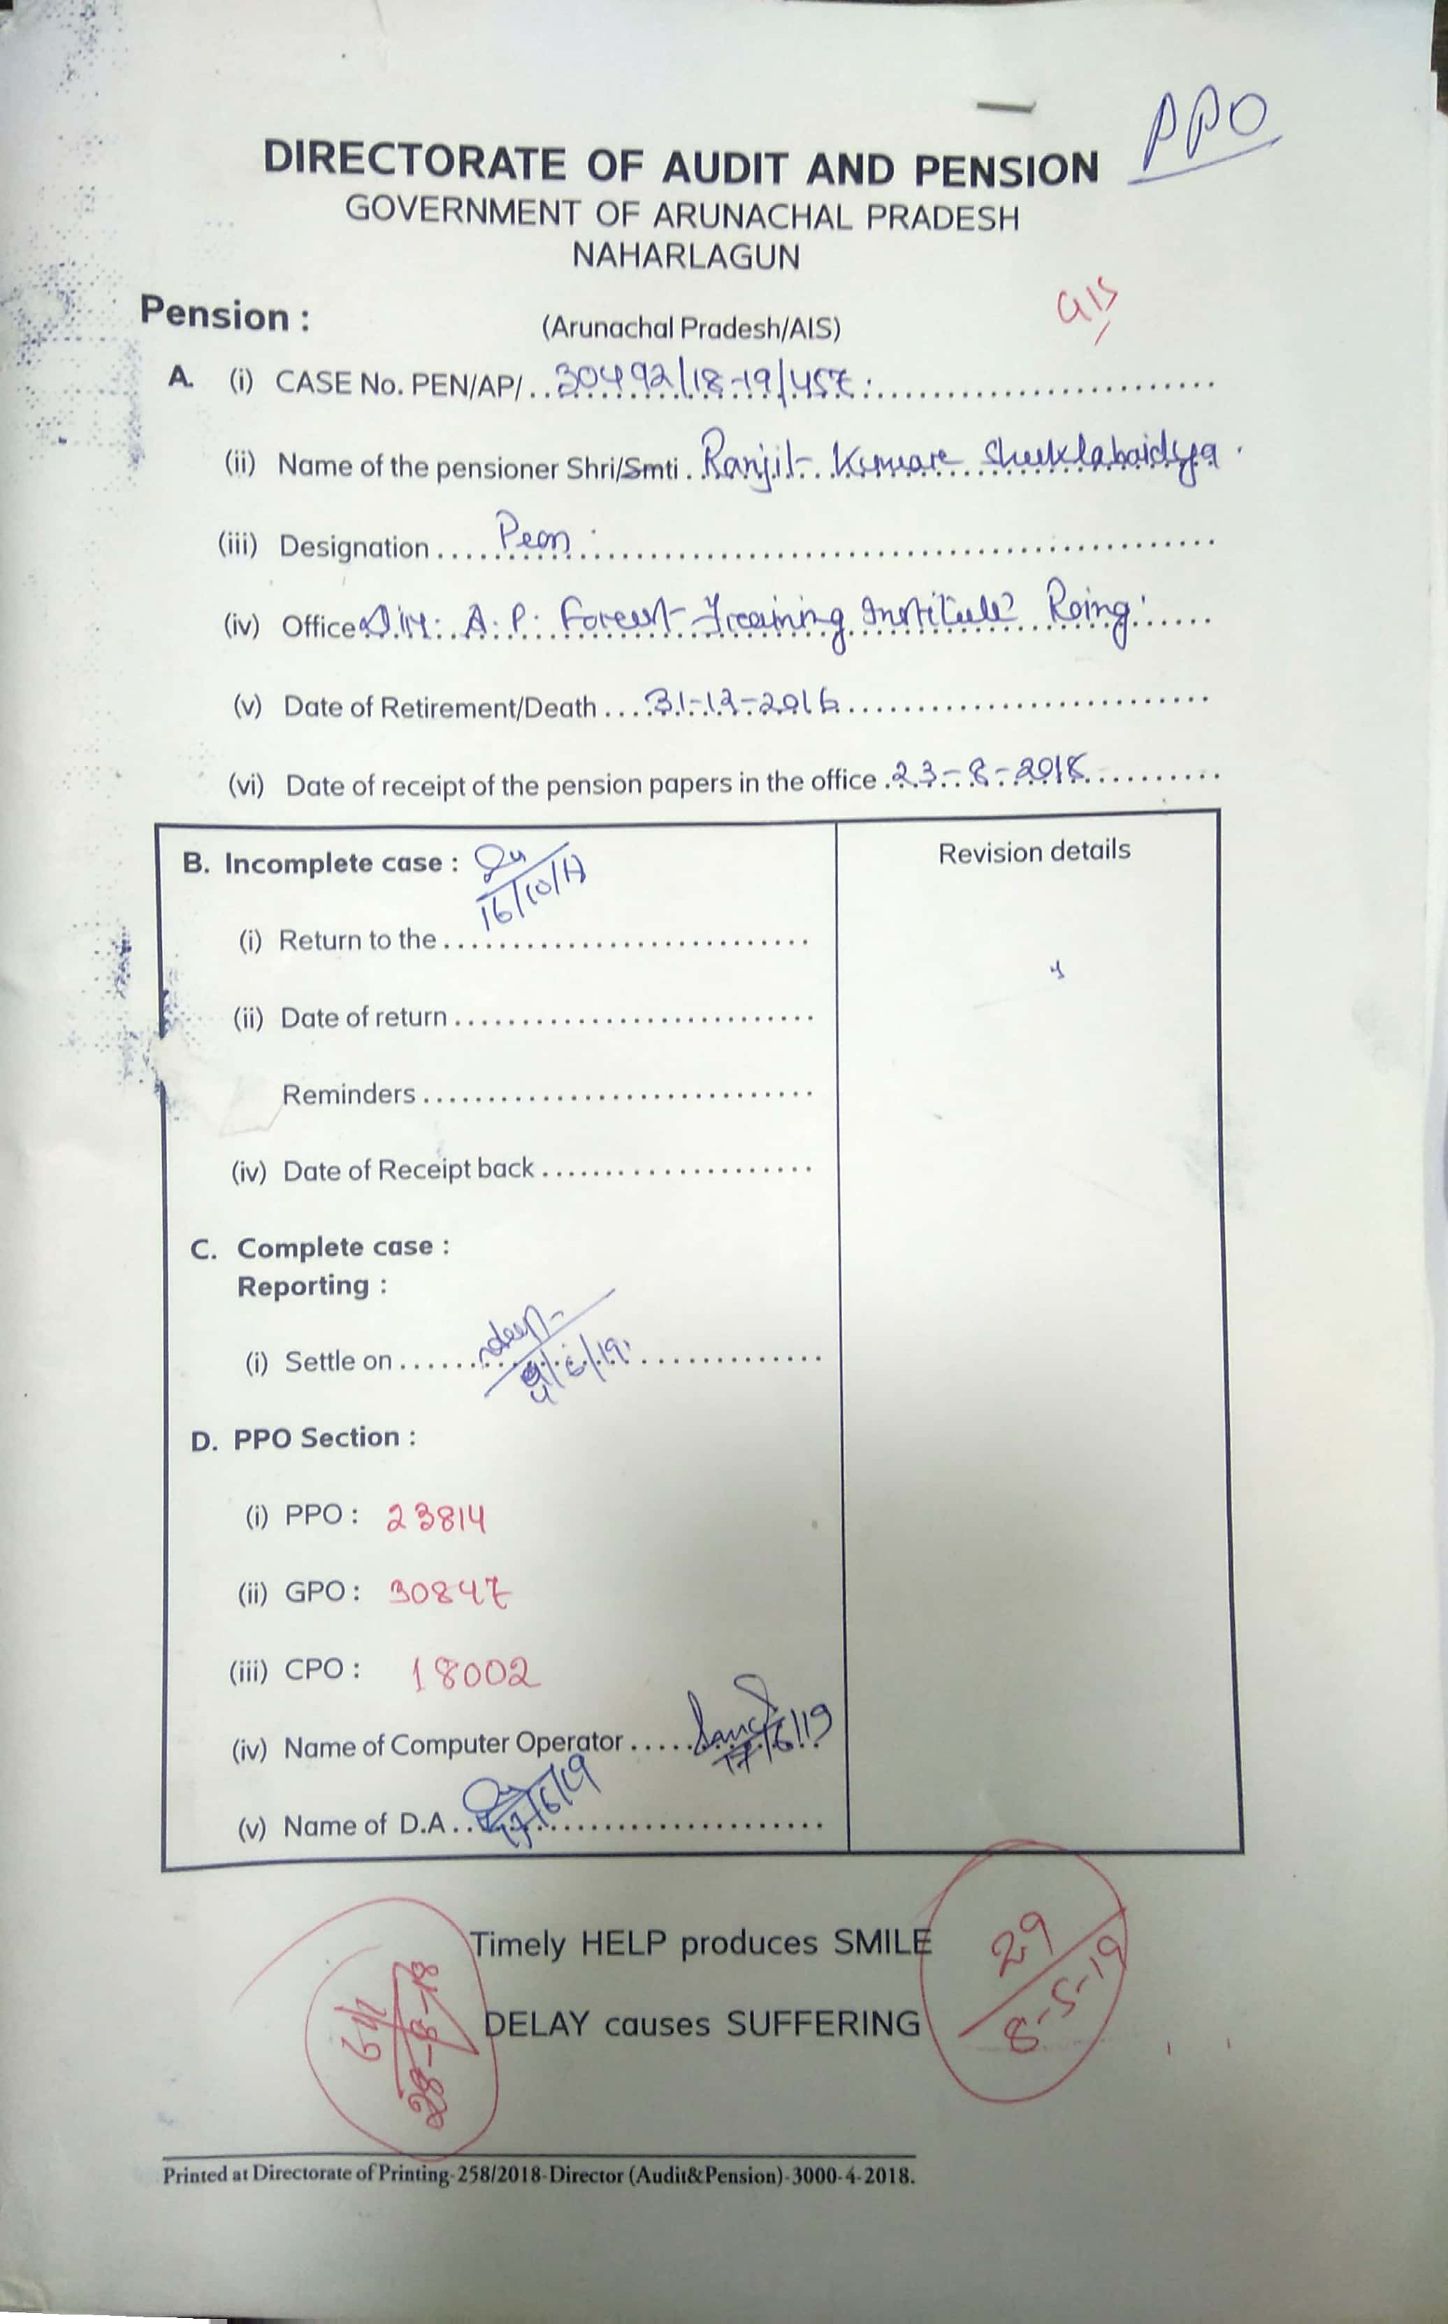 PPO
DIRECTORATE OF AUDIT AND PENSION
GOVERNMENT OF ARUNACHAL PRADESH
NAHARLAGUN
GIS
Pension :
(Arunachal Pradesh/AIS)
A. (i) CASE No. PEN/AP/..30492/18-19/457:
(ii) Name of the pensioner Shri/Smti. Ranjit Kumar Shuklabaidya.
(iii) Designation.....Peon
(iv) Office A.P. Forest Training Institute Roing
(v) Date of Retirement/Death....31-12-2016
(vi) Date of receipt of the pension papers in the office.23-8-2018
B. Incomplete case :
Revision details
(i) Return to the
(ii) Date of return
Reminders
(iv) Date of Receipt back
C. Complete case :
Reporting :
(i) Settle on
D. PPO Section :
(i) PPO : 23814
(ii) GPO : 30847
(iii) CPO : 18002
(iv) Name of Computer Operator ..... 17/6/19
(v) Name of D.A... 17/6/19
Timely HELP produces SMILE
29
8-5-19
DELAY causes SUFFERING
28-8-18
Printed at Directorate of Printing-258/2018-Director (Audit&Pension)-3000-4-2018.